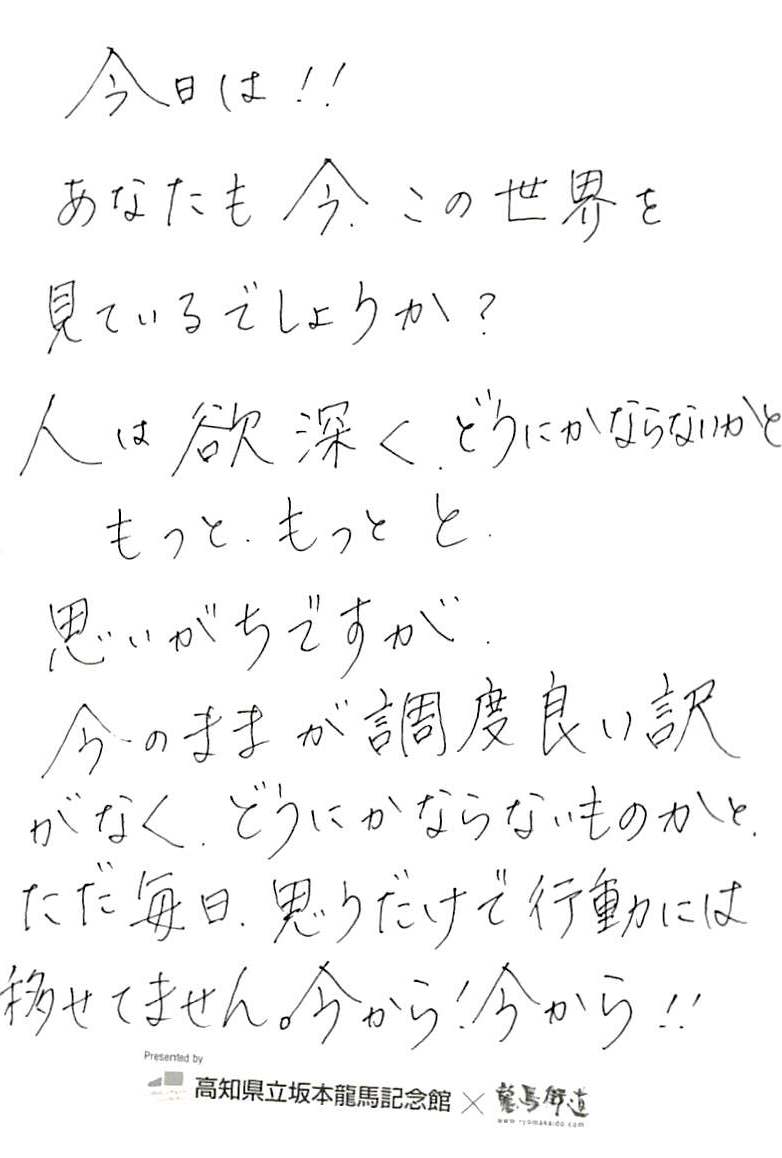 今日は!!
あなたも今、この世界を
見ているでしょうか?
人は欲深く、どうにかならないかと
もっと、もっとと、
思いがちですが、
今のままが調度良い訳
がなく、どうにかならないものかと、
ただ毎日、思うだけで行動には
移せてません。今から!今から!!
Presented by
高知県立坂本龍馬記念館 × 龍馬街道
www.ryomakaido.com